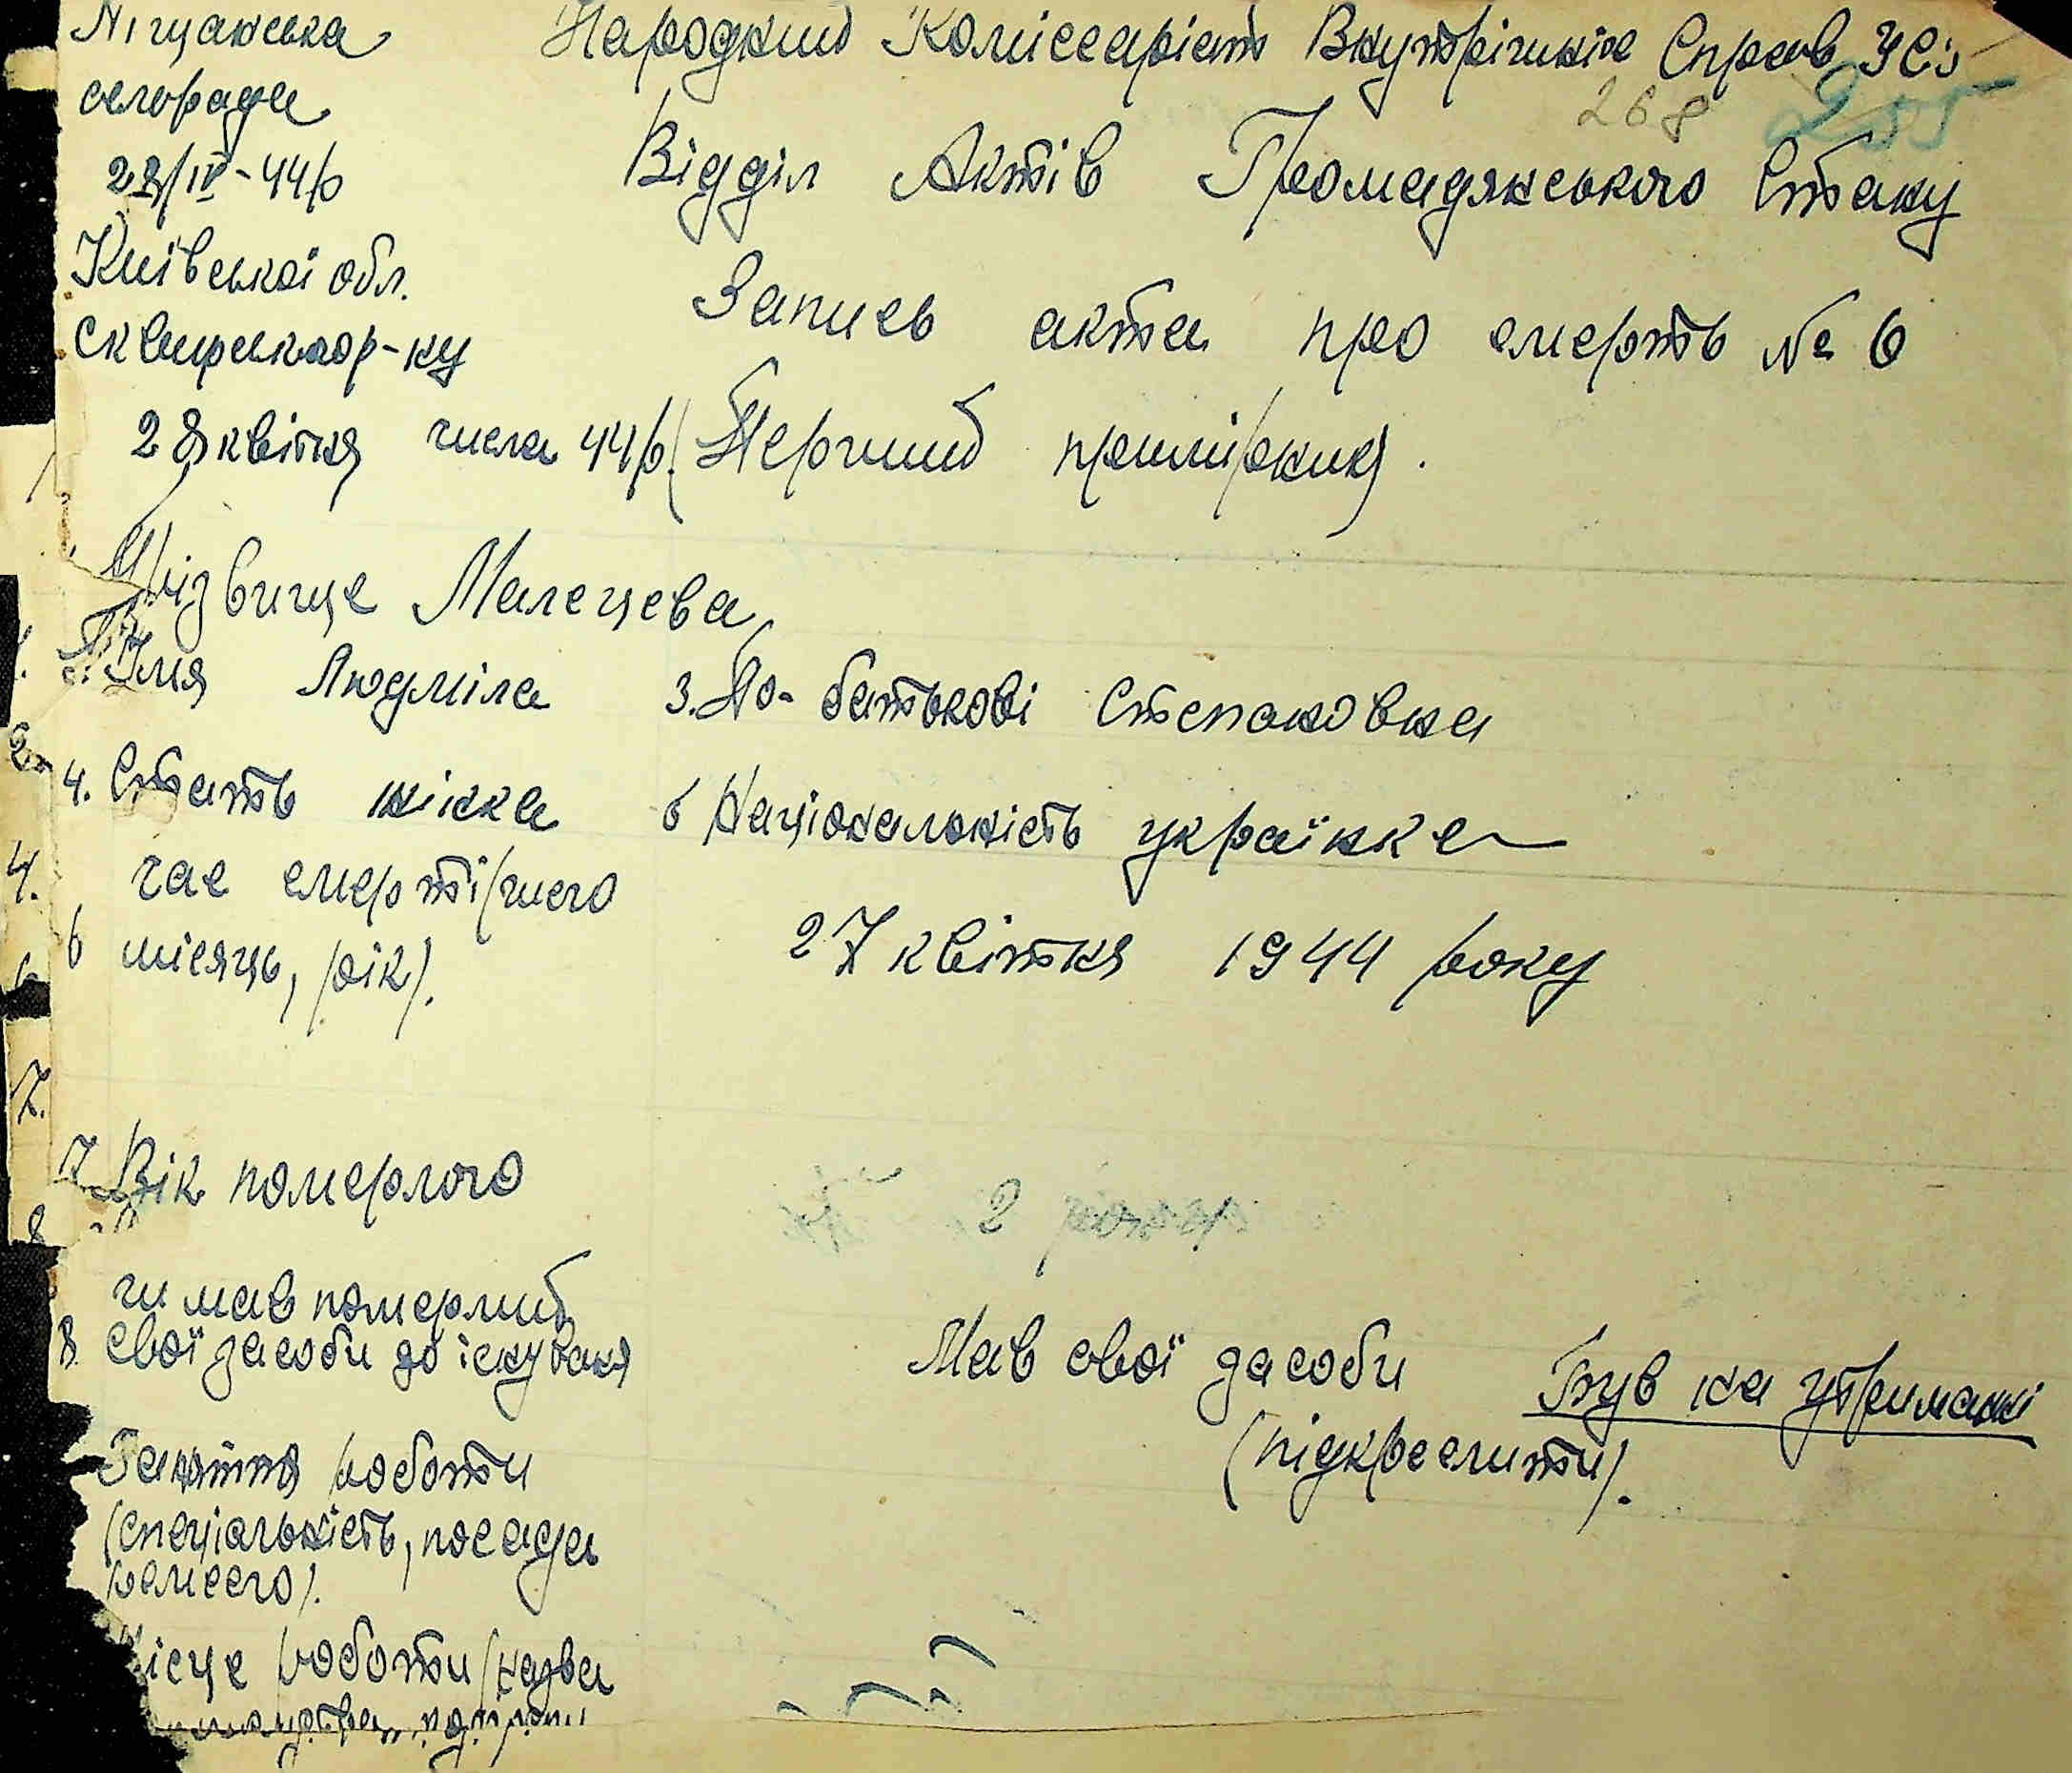 Лігцанська
селорада
28/IV-44р
Київської обл.
Сквирськаор-ну
Народний Коміссаріат Внутрішніх Справ УС
268 255
Відділ Актів Громадянського Стану
Запись акта про смерть № 6
28 квітня числа 44р. (Перший примірник).
Прізвище Малецева
2. Імя Людміла 3. По-батькові Степановна
4. Стать жінка 5 Національність українка
час смерті (число
6 місяць, рік). 27 квітня 1944 року
7 Вік померлого 2 роки
чи мав померлий
8 свої засоби до існування Мав свої засоби Був на утриманні
(підкреслити).
Заняття роботи
(спеціальність, посада
ремесло).
Місце роботи (назва